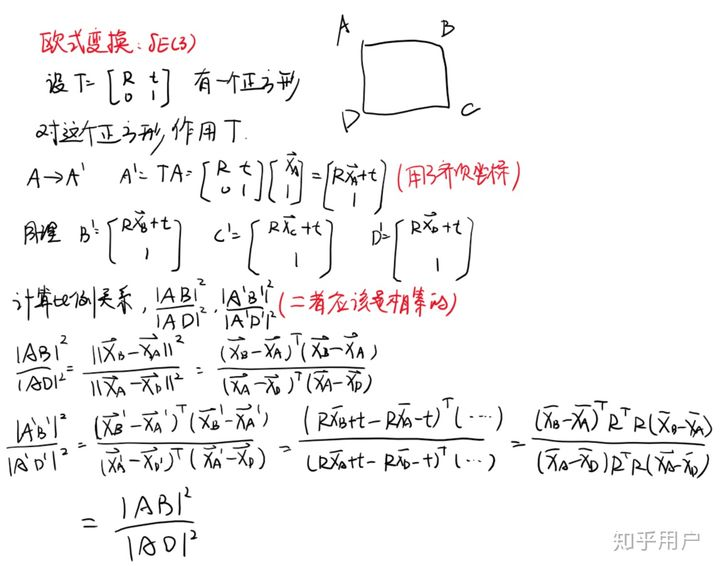 欧式变换: SE(3)
A B
D C
设 T= [R t; 0 1] 有一个正方形
对这个正方形, 作用 T.
A→A' A'= TA= [R t; 0 1] [x⃗_A; 1] = [Rx⃗_A+t; 1] (用了齐次坐标)
同理 B'= [Rx⃗_B+t; 1] C'= [Rx⃗_C+t; 1] D'= [Rx⃗_D+t; 1]
计算比例关系, |AB|²/|AD|², |A'B'|²/|A'D'|² (二者应该是相等的)
|AB|²/|AD|² = ||x⃗_B-x⃗_A||²/||x⃗_A-x⃗_D||² = (x⃗_B-x⃗_A)^T(x⃗_B-x⃗_A)/(x⃗_A-x⃗_D)^T(x⃗_A-x⃗_D)
|A'B'|²/|A'D'|² = (x⃗_B'-x⃗_A')^T(x⃗_B'-x⃗_A')/(x⃗_A'-x⃗_D')^T(x⃗_A'-x⃗_D) = (Rx⃗_B+t-Rx⃗_A-t)^T(...)/(Rx⃗_A+t-Rx⃗_D-t)^T(...) = (x⃗_B-x⃗_A)^T R^T R(x⃗_B-x⃗_A)/(x⃗_A-x⃗_D)R^T R(x⃗_A-x⃗_D)
= |AB|²/|AD|²
知乎用户